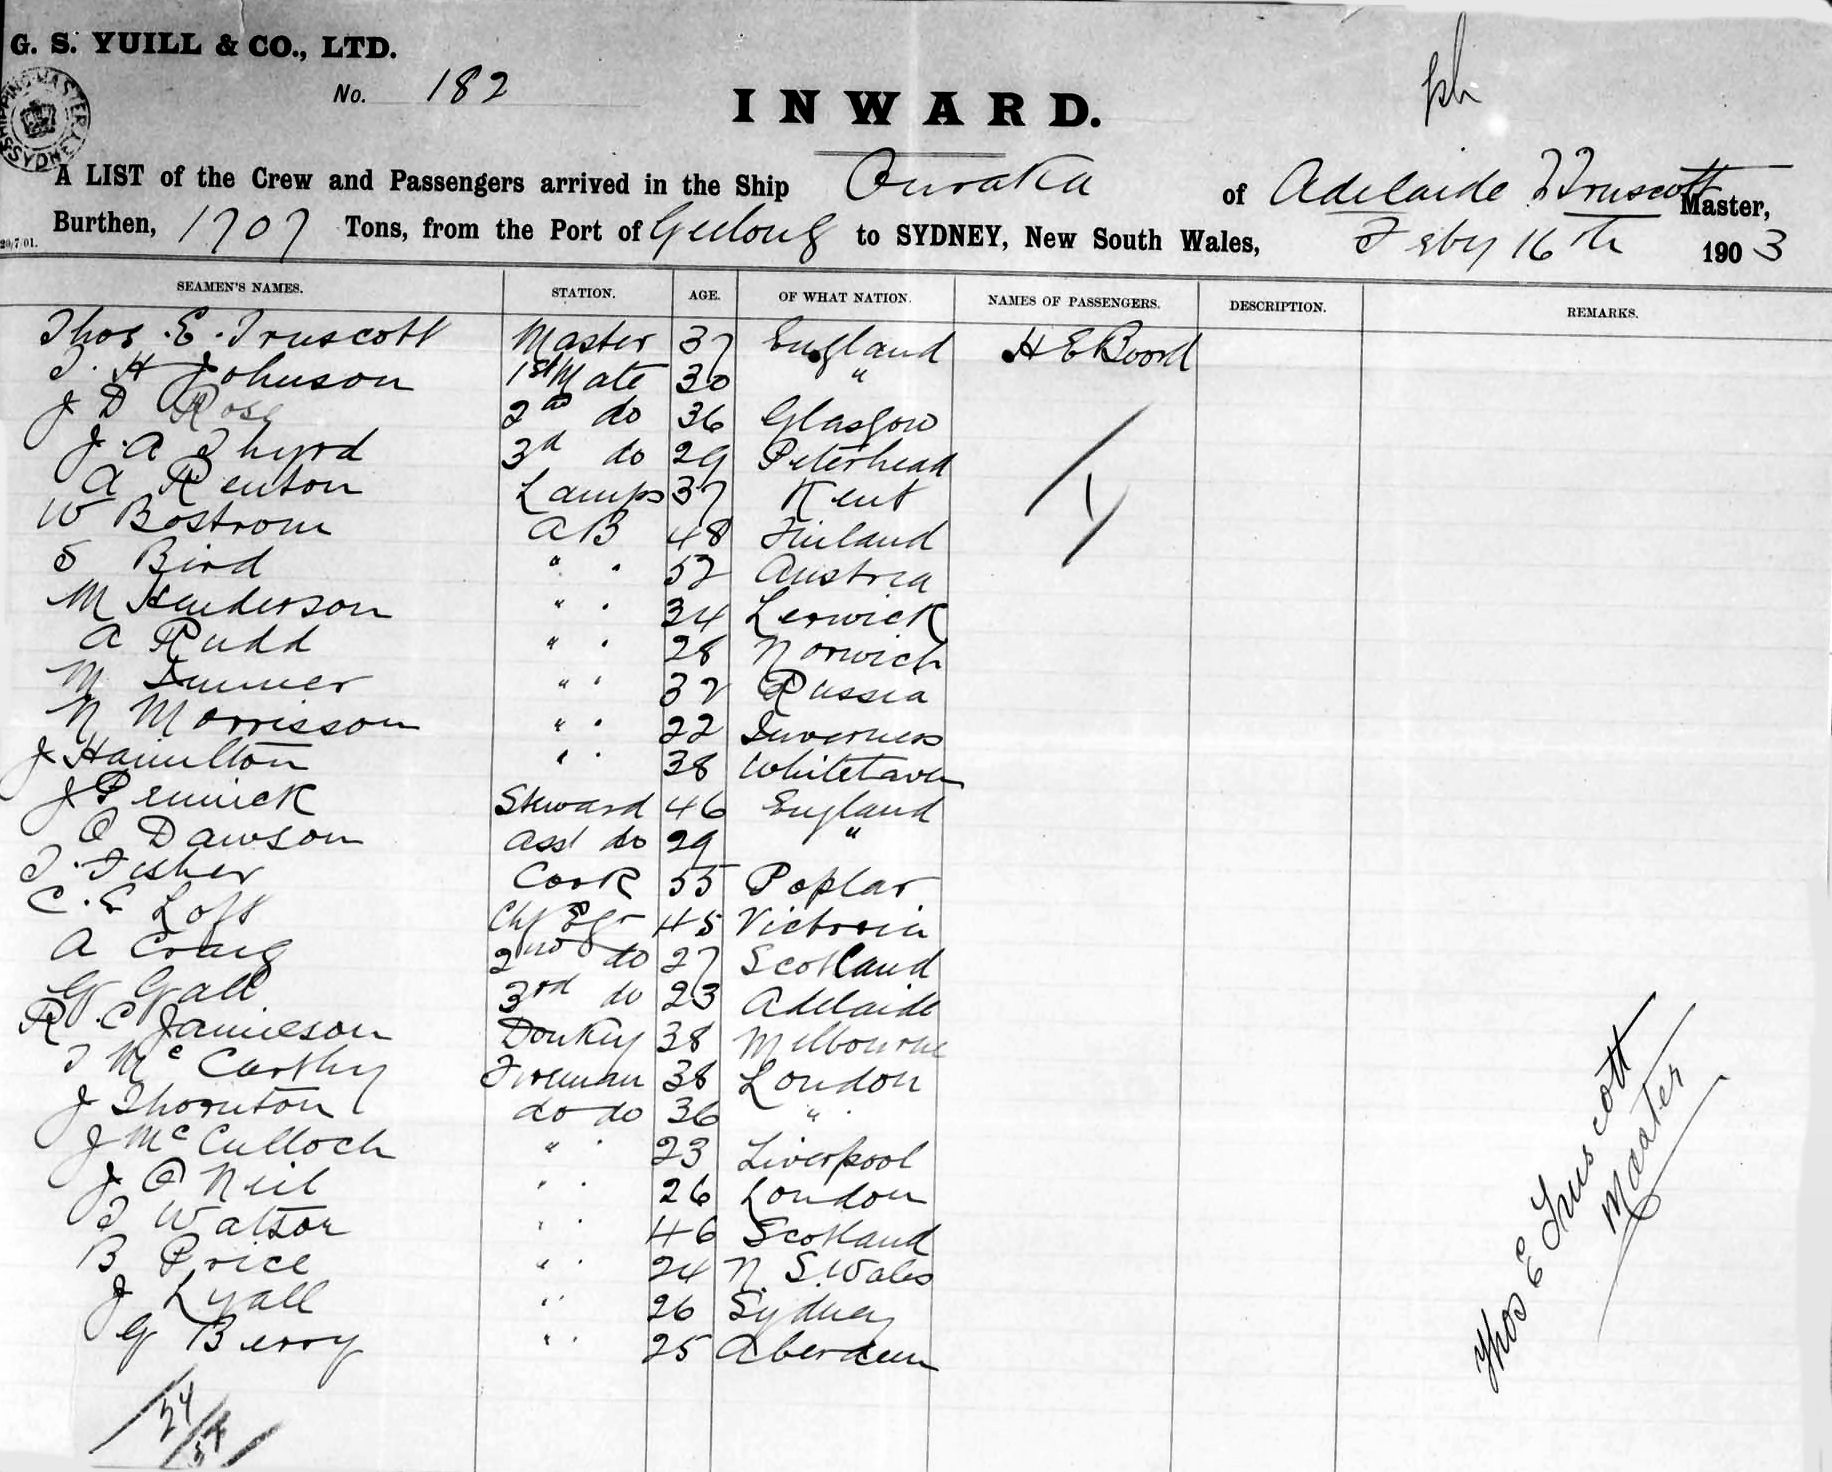 G. S. YUILL & CO., LTD.
No. 182
INWARD.
A LIST of the Crew and Passengers arrived in the Ship Ouraka of Adelaide T Truscott Master,
Burthen, 1707 Tons, from the Port of Geelong to SYDNEY, New South Wales, Feby 16th 1903
20/7/01.
SEAMEN'S NAMES. STATION. AGE. OF WHAT NATION. NAMES OF PASSENGERS. DESCRIPTION. REMARKS.
Thos. E. Truscott Master 37 England H E Boord
T. H Johnson 1st Mate 30 "
J D Rose 2nd do 36 Glasgow
J. A Thyrd 3rd do 29 Peterhead
A Renton Lamps 37 Kent
W Bostrom AB 48 Finland
S Bird " . 52 Austria
M Henderson " . 34 Lerwick
A Rudd " . 28 Norwich
M " . 32 Russia
N Morrisson " . 22 Inverness
J Hamilton " . 38 Whitehaven
J Pennick Steward 46 England
O Dawson Asst do 29 "
T. Fisher Cook 55 Poplar
C. E Loft Chf Egr 45 Victoria
A Craig 2nd do 27 Scotland
G Gall 3rd do 23 Adelaide
R. C Jamieson Donkey 38 Melbourne
T McCarthy Fireman 38 London
J Thornton do do 36 "
J McCulloch " . 23 Liverpool
J O Neil " . 26 London
T Watson " . 46 Scotland
B Price " . 24 N. S. Wales
J Lyall " . 26 Sydney
G Berry " . 25 Aberdeen
Thos E Truscott
Master